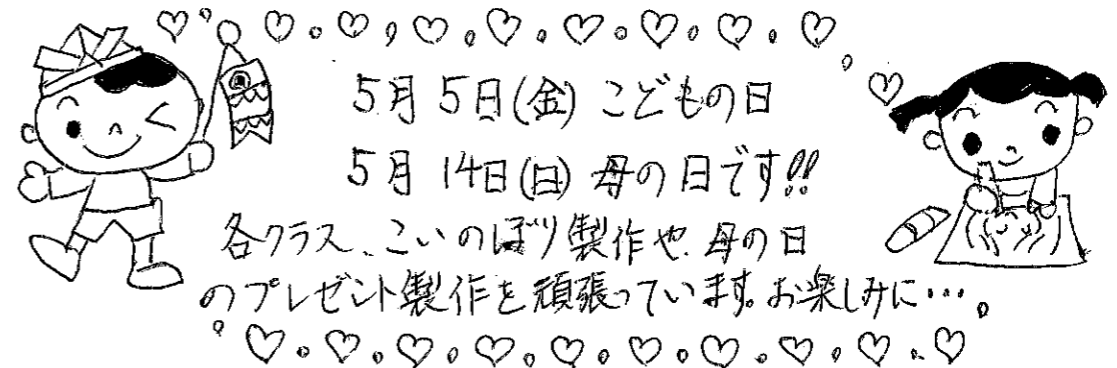 5月5日(金) こどもの日
5月14日(日) 母の日です!!
各クラス、こいのぼり製作や、母の日
のプレゼント製作を頑張っています。お楽しみに…。